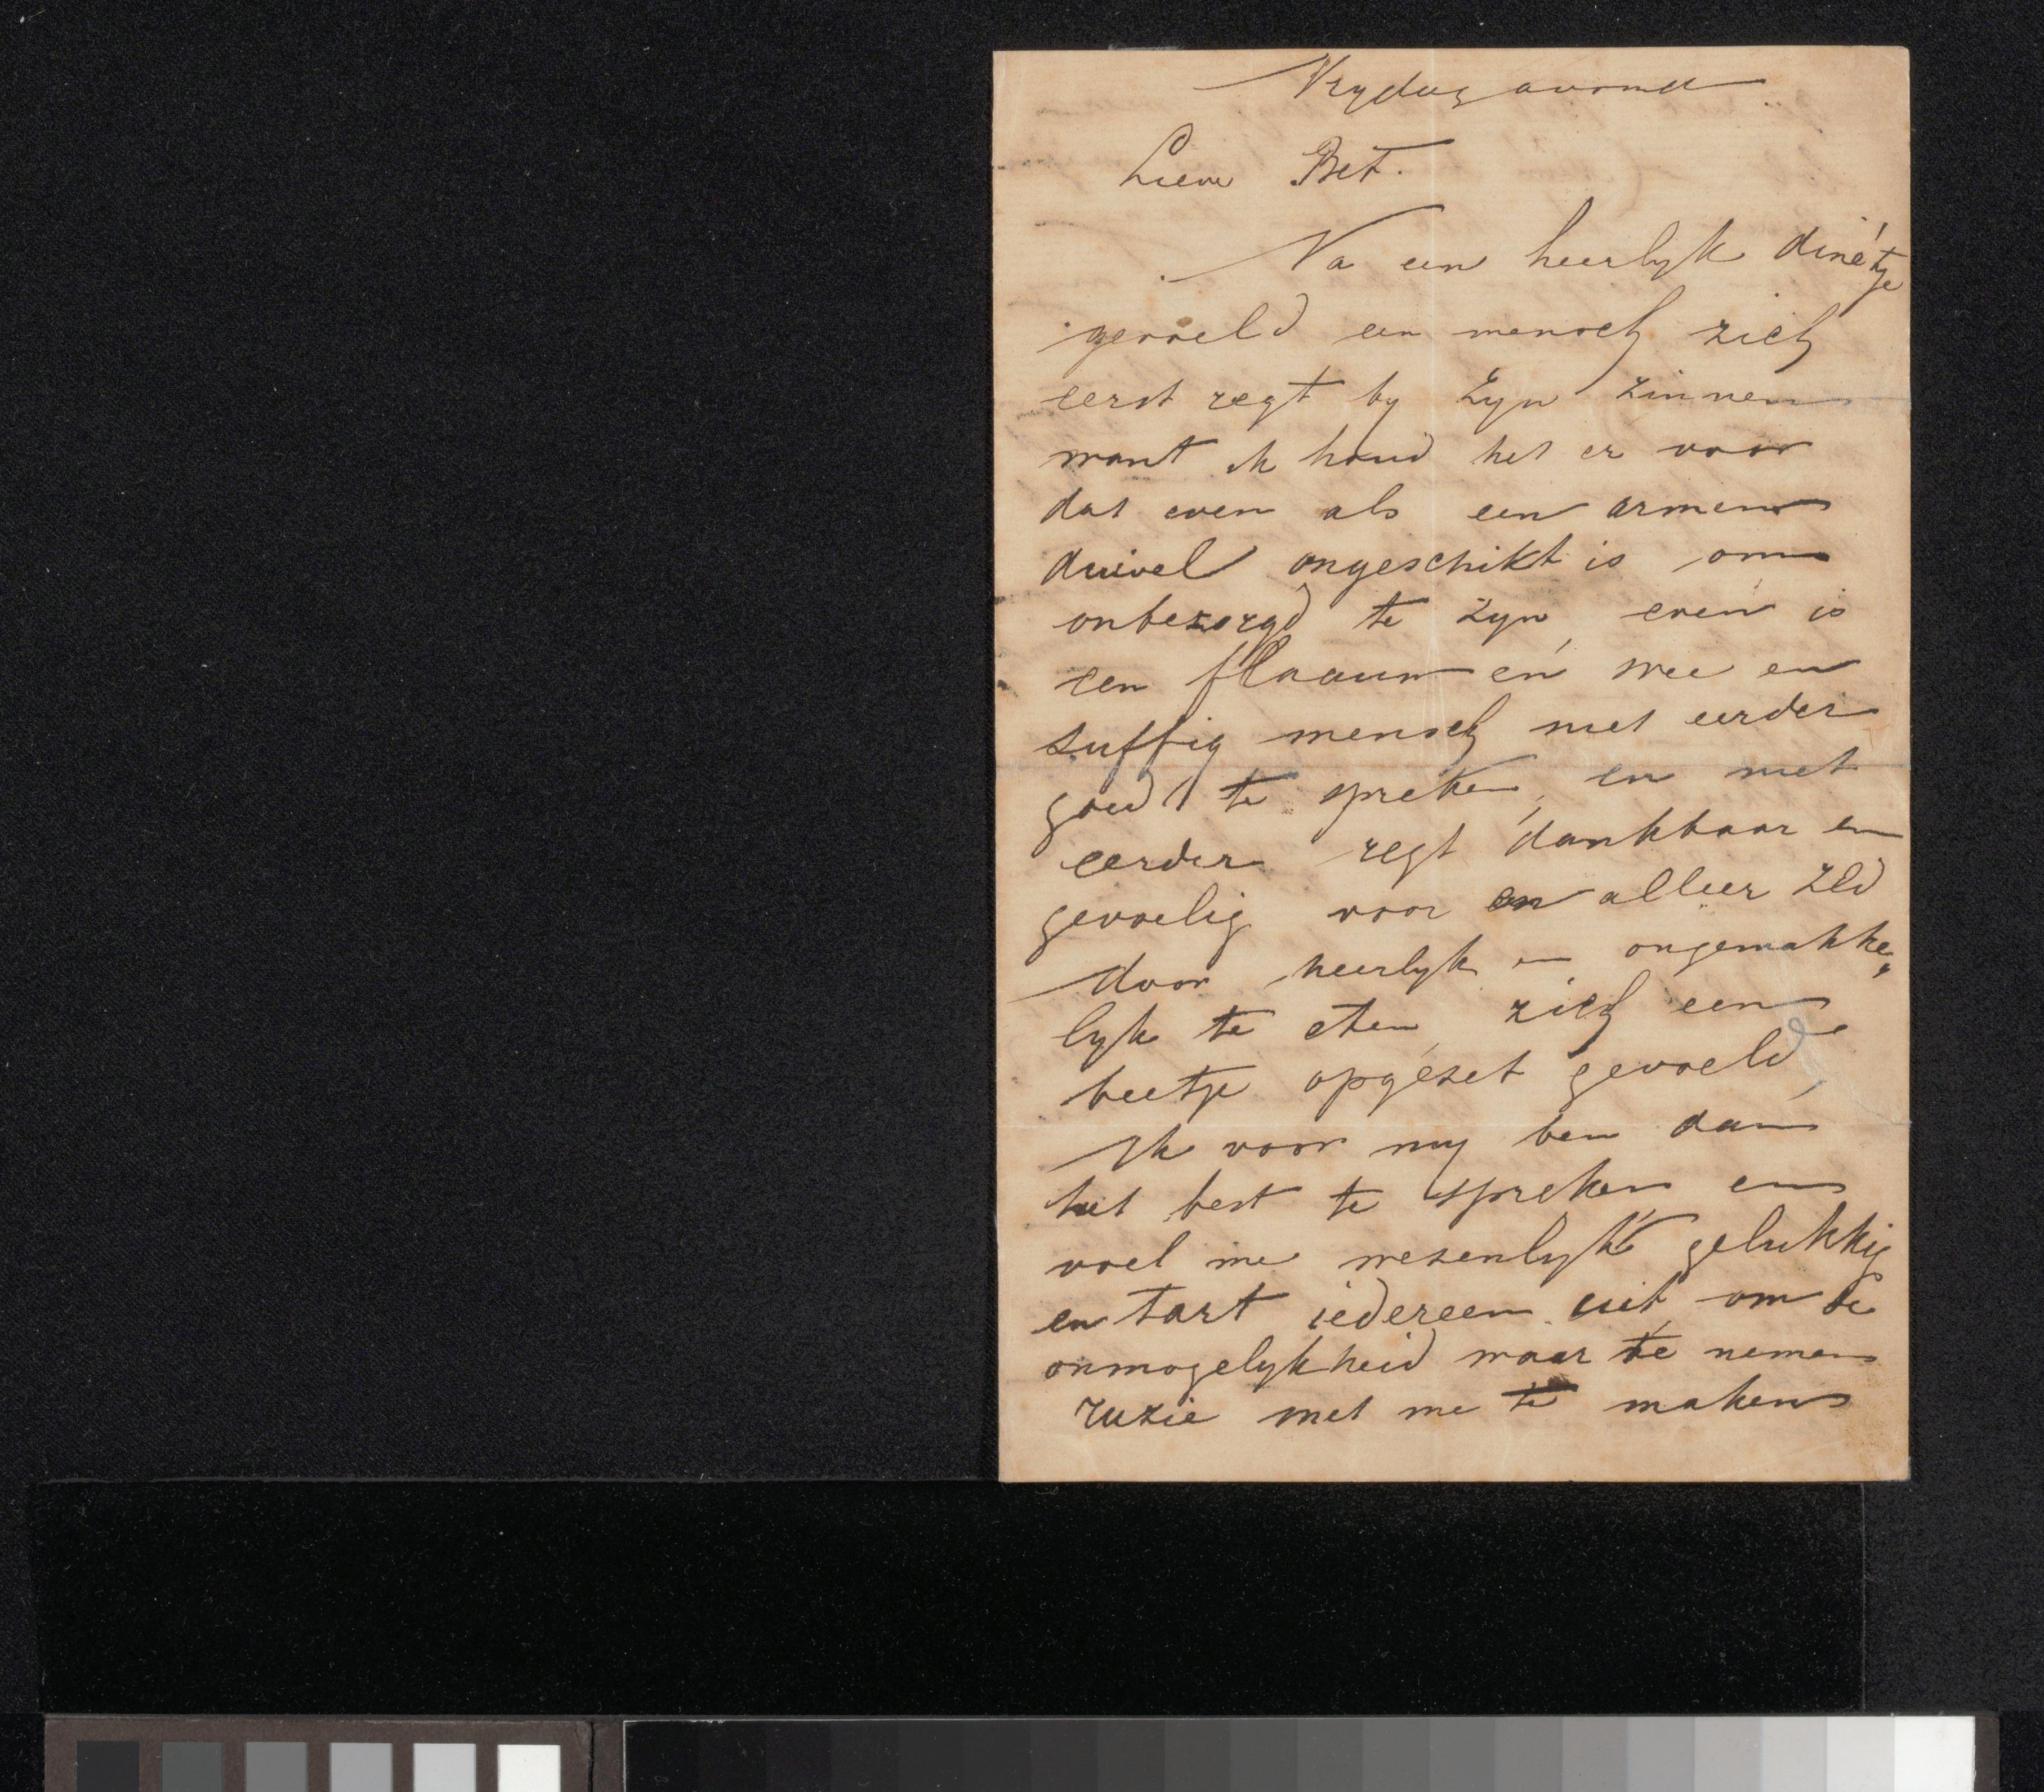 Vrydag avond
Lieve Bet.
Na een heerlyk dinétje
gevoeld een mensch zich
eerst regt by zyn zinnen
want ik houd het er voor
dat even als een armen
duivel ongeschikt is om
onbezorgd te zyn, even is
een flaauw en wee en
suffig mensch niet eerder
goed te spreken, en niet
eerder regt dankbaar en
gevoelig voor en alleer
door heerlyk en ongemakke„
lyk te eten, zich een
beetje opgezet gevoeld,
Ik voor my ben dan
het best te spreken en
voel me wezenlyk gelukkig
en tart iedereen uit om de
onmogelykheid waar te nemen
ruzie met me te maken